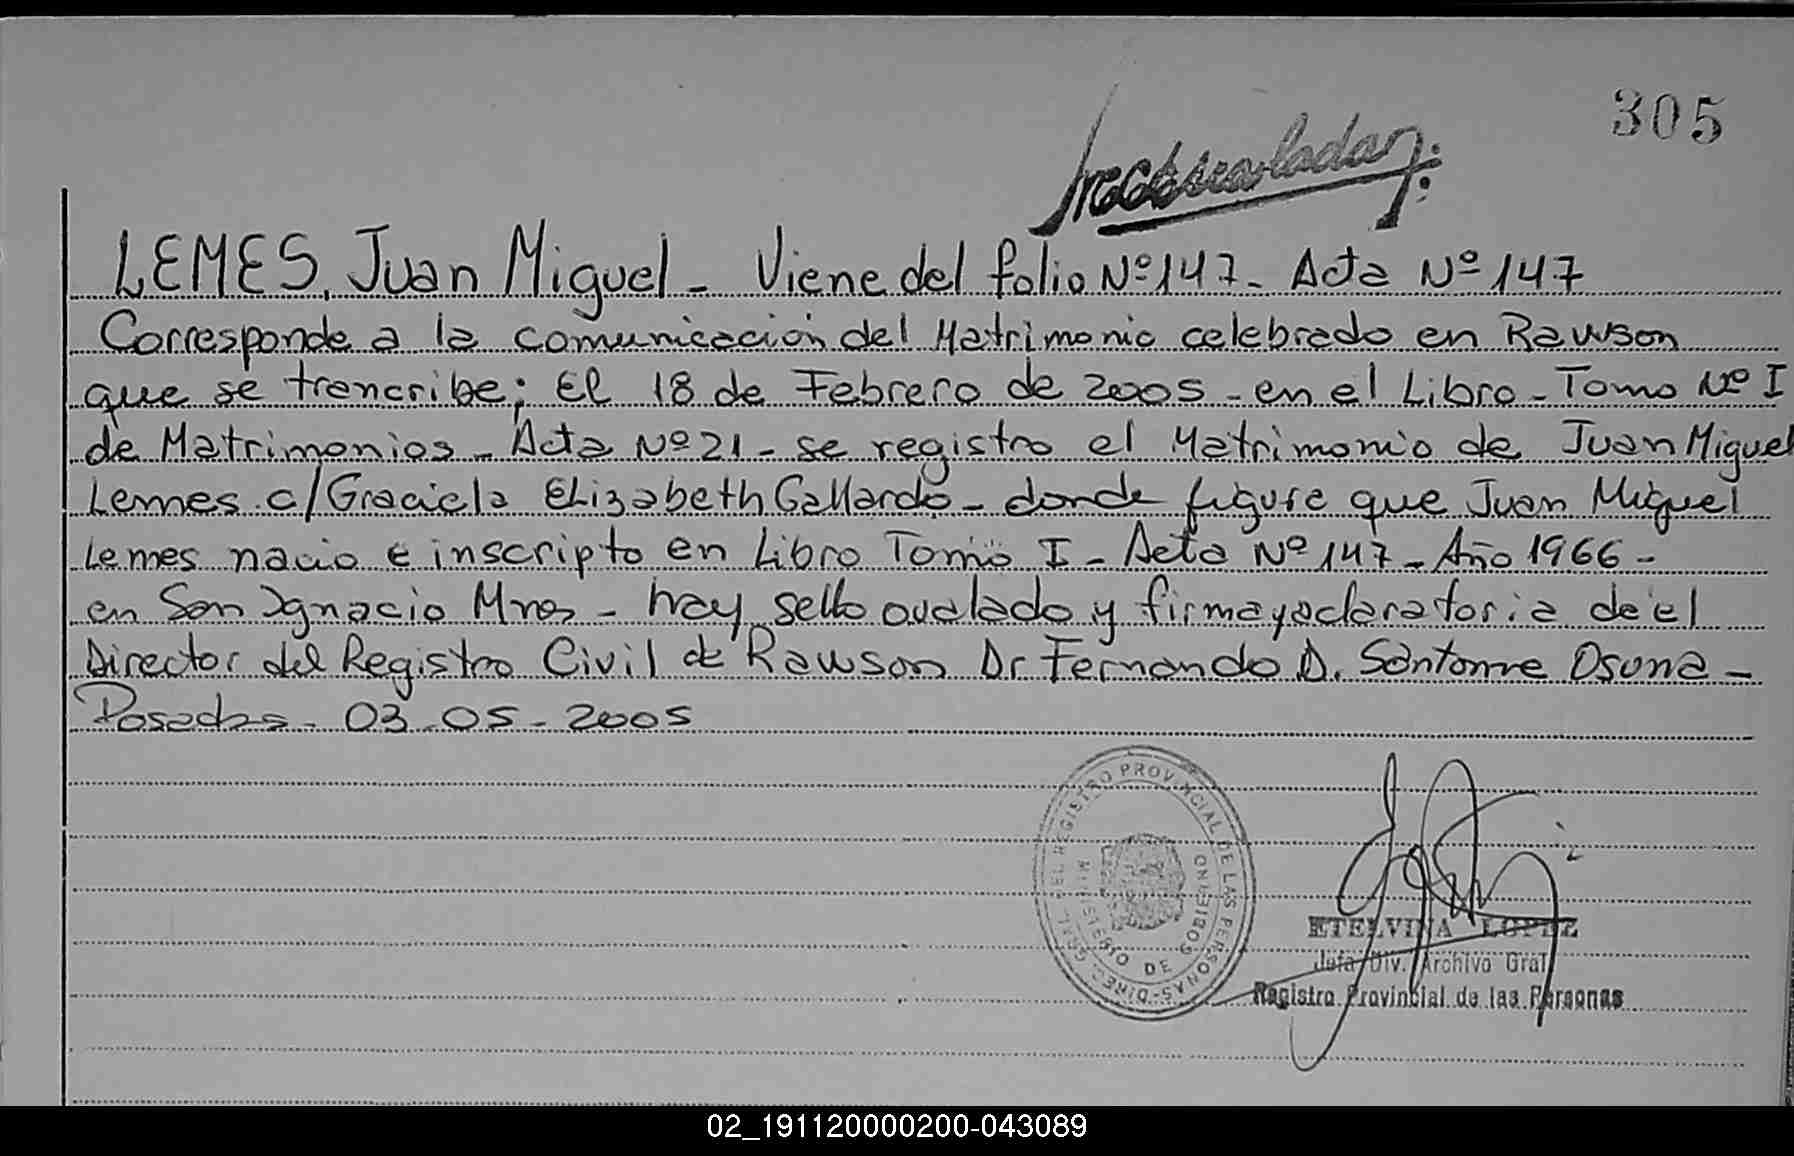 305
LEMES, Juan Miguel - Viene del folio Nº 147 - Acta Nº 147
Corresponde a la comunicación del Matrimonio celebrado en Rawson
que se trencribe; El 18 de Febrero de 2005 - en el Libro - Tomo Nº I
de Matrimonios - Acta Nº 21 - se registro el Matrimonio de Juan Miguel
Lemes c/ Graciela Elizabeth Gallardo - donde figura que Juan Miguel
Lemes nacio e inscripto en Libro Tomo I - Acta Nº 147 - Año 1966 -
en San Ignacio Mnes - hay sello ovalado y firma y aclaratoria de el
Director del Registro Civil de Rawson Dr Fernando D. Santome Osuna -
Posadas - 03 - 05 - 2005
DIRE. GRAL. DEL REGISTRO PROVINCIAL DE LAS PERSONAS
MINISTERIO DE GOBIERNO
ETELVINA LOPEZ
Jefa Div. Archivo Gral
Registro Provincial de las Personas
02_191120000200-043089